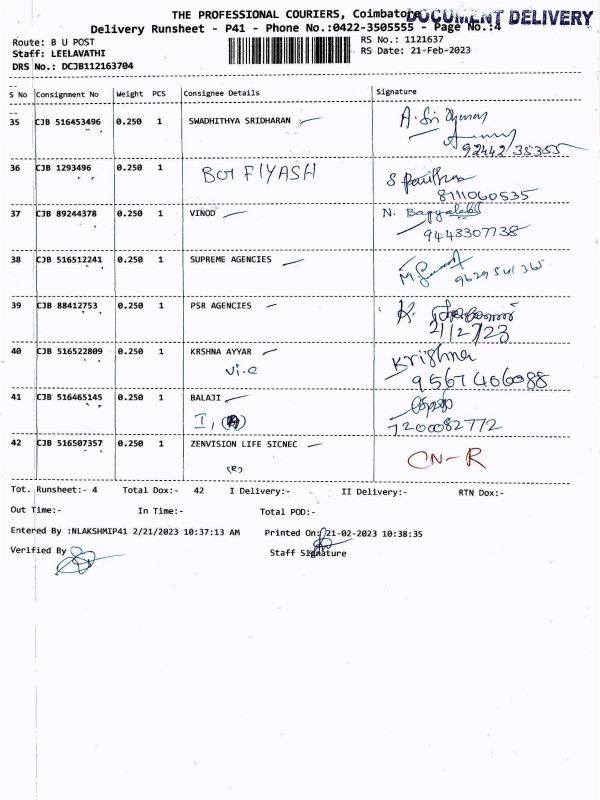 THE PROFESSIONAL COURIERS, Coimbato
DOCUMENT DELIVERY
Delivery Runsheet - P41 - Phone No.:0422-3505555 - Page No.:4
Route: B U POST RS No.: 1121637
Staff: LEELAVATHI RS Date: 21-Feb-2023
DRS No.: DCJB112163704
S No Consignment No Weight PCS Consignee Details Signature
35 CJB 516453496 0.250 1 SWADHITHYA SRIDHARAN
92442 35355
36 CJB 1293496 0.250 1
8111060535
37 CJB 89244378 0.250 1 VINOD N.
9443307738
38 CJB 516512241 0.250 1 SUPREME AGENCIES
9629541365
39 CJB 88412753 0.250 1 PSR AGENCIES K.
21/2/23
40 CJB 516522809 0.250 1 KRSHNA AYYAR Krishna
9567406088
41 CJB 516465145 0.250 1 BALAJI
7200082772
42 CJB 516507357 0.250 1 ZENVISION LIFE SICNEC CN-R
(R)
Tot. Runsheet:- 4 Total Dox:- 42 I Delivery:- II Delivery:- RTN Dox:-
Out Time:- In Time:- Total POD:-
Entered By :NLAKSHMIP41 2/21/2023 10:37:13 AM Printed On: 21-02-2023 10:38:35
Verified By Staff Signature